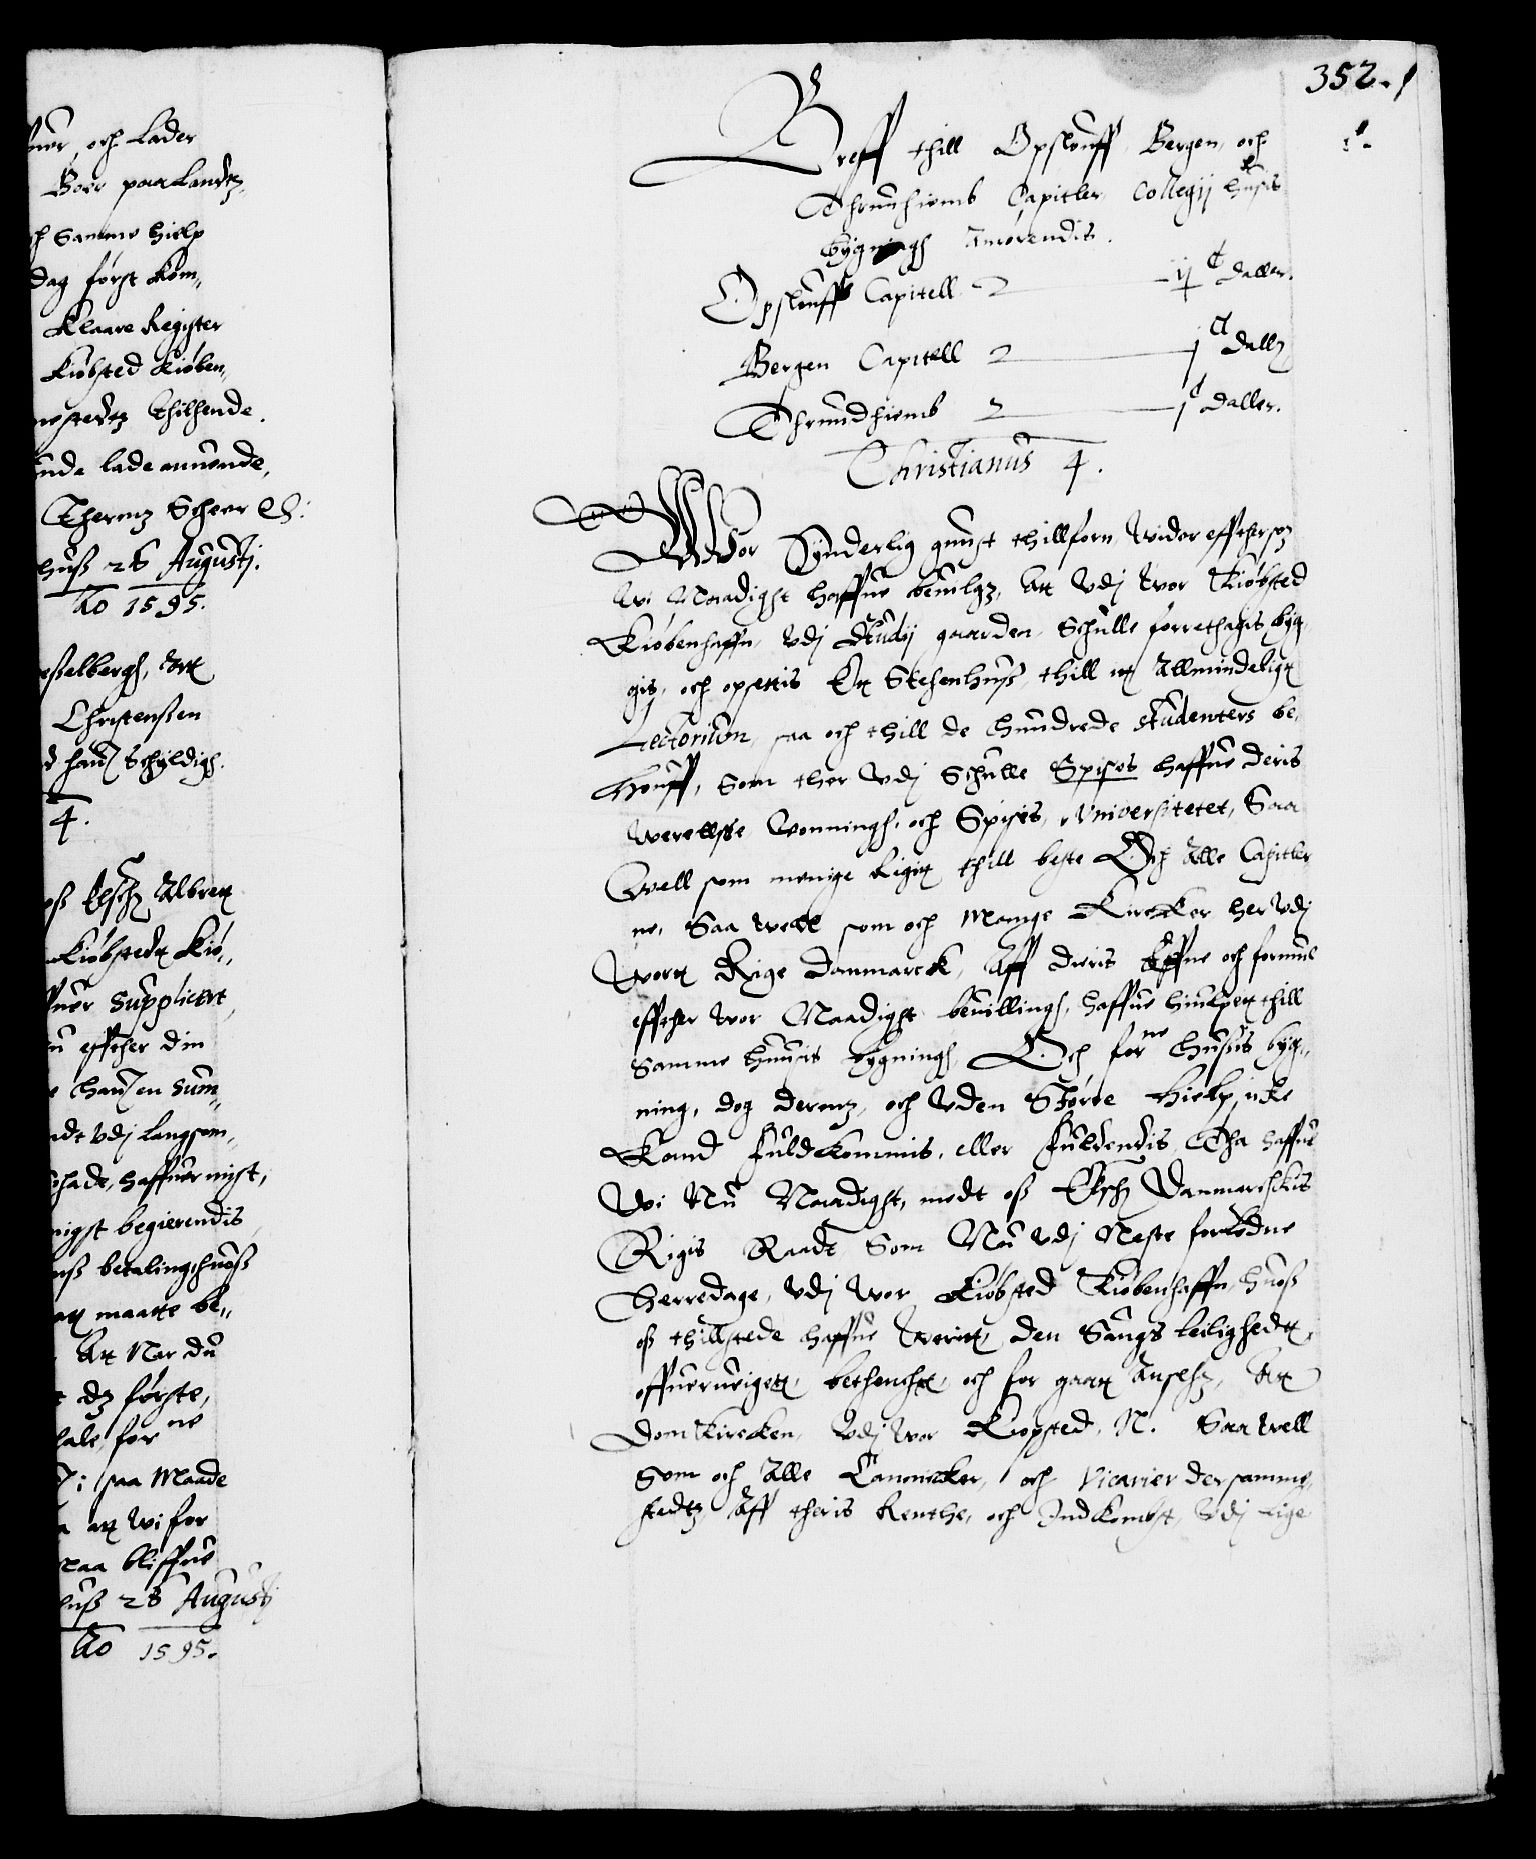 ner, och lader
Boer paa Landtz
h Samme hielp
dag först kom,,
Klaare Register
Kiöbsted Kiöben,,
nestedtz thilhende.
unde lade anuende,
Therenz Scheer Etc:
huß 26 Augustj.
Ao 1595.
eßelbergh, Att
Christenßen
d hanß Schyldigh.
4.
oß Elschz Albrett
Kiöbstedt Kiö,,
ffuer Supplicert,
u effther din
e hanß en Sum,,
ndt vdj langsom,,
chade, haffuer mist,
nigst begierendis
nß betaling huoß
att maatte be,,
Att Nar du
dz förste,
hale, for ne
saa Maade
att wi for
maa bliffue
huß 28 Augustj
Ao 1595.
352.
1.
Breff thill Opslouff, Bergen, och
Thrundhiemb Capitler Collegij husis
bygningh Anrörendis.
Opslouffs Capitell ij C daller.
Bergen Capitell j C dallr
Thrundhiemb j C daller.
Christianus 4.
Wor Synderlig gunst thillforn, Wider effthersom
Wi Naadigst haffue beuilget, Att Vdj Wor Kiöbsted
Kiöbenhaffn, Vdj Studij gaarden, Schulle forrethagis byg,,
gis, och opsettis Ett Stehenhuß, thill itt Allmindeligt
Lectorium, saa och thill de hundrede Studenters be,,
houff, Som ther Vdj Schulle Spises haffue deris
Werellsse Wonningh, och Spises, Vniversitetet, Saa
Well som menige Rigitt thill beste Och Alle Capitler
ne, Saa well som och Mange Kircker her Vdj
Wortt Rige Danmarck, Aff deris Effne och formue
effther Wor Naadigst beuillingh, haffue hiulpett thill
Samme huusis bygningh, Och forne husis byg,,
ning, dog derenz, och Vden Större hielp icke
Kand fuldkommis, eller fuldendis, Tha haffue
Wi Nu Naadigst, medt oß Elschz Danmarckis
Rigis Raadt, Som Nu Vdj Neste forledne
Herredage, Vdj Wor Kiöbsted Kiöbenhaffn, huoß
oß thillstede haffue Weritt, den Saugs leilighedt,
offuerueigett, bethenckt, och for gaatt Ansehz, Att
Dom Kircken, Vdj Wor Kiöpsted, N. Saa Well
Som och Alle Canonicker, och Vicarier dersamme,,
stedtz Aff theris Renthe, och Indkombst, Vdj Lige